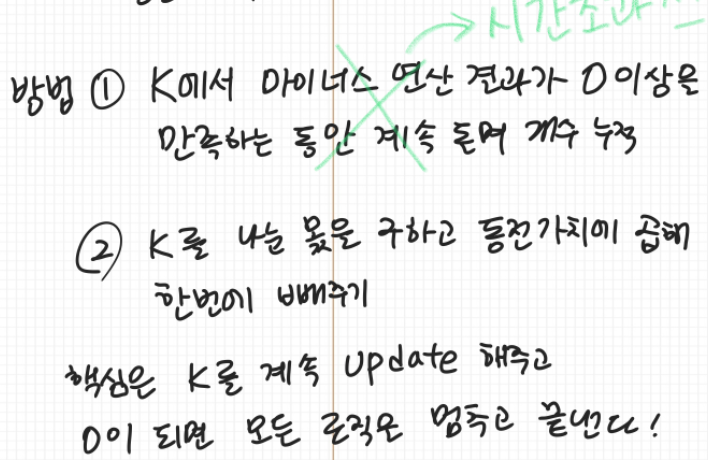 시간초과
방법 ① K에서 마이너스 연산 결과가 0이상을
만족하는 동안 계속 돌며 개수 누적
② K를 나눈 몫을 구하고 동전가치에 곱해
한번에 빼주기
핵심은 K를 계속 update 해주고
0이 되면 모든 로직은 멈추고 끝낸다!